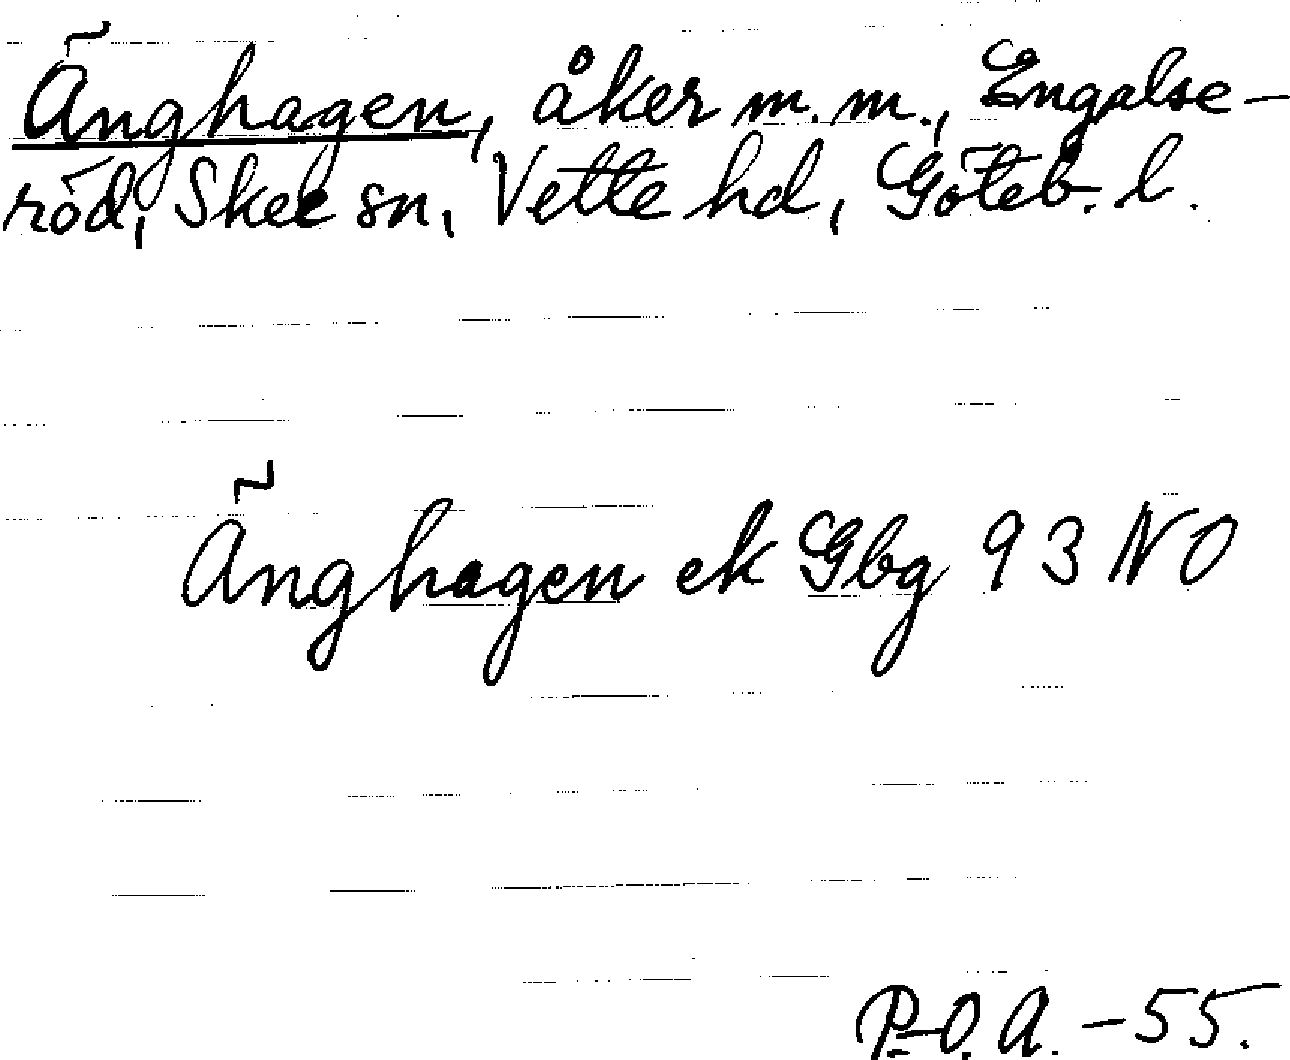 Änghagen, åker m.m., Engalse-
röd, Skee sn, Vette hd, Göteb. l.
Änghagen ek Gbg 93 NO
P.-O. A. -55.